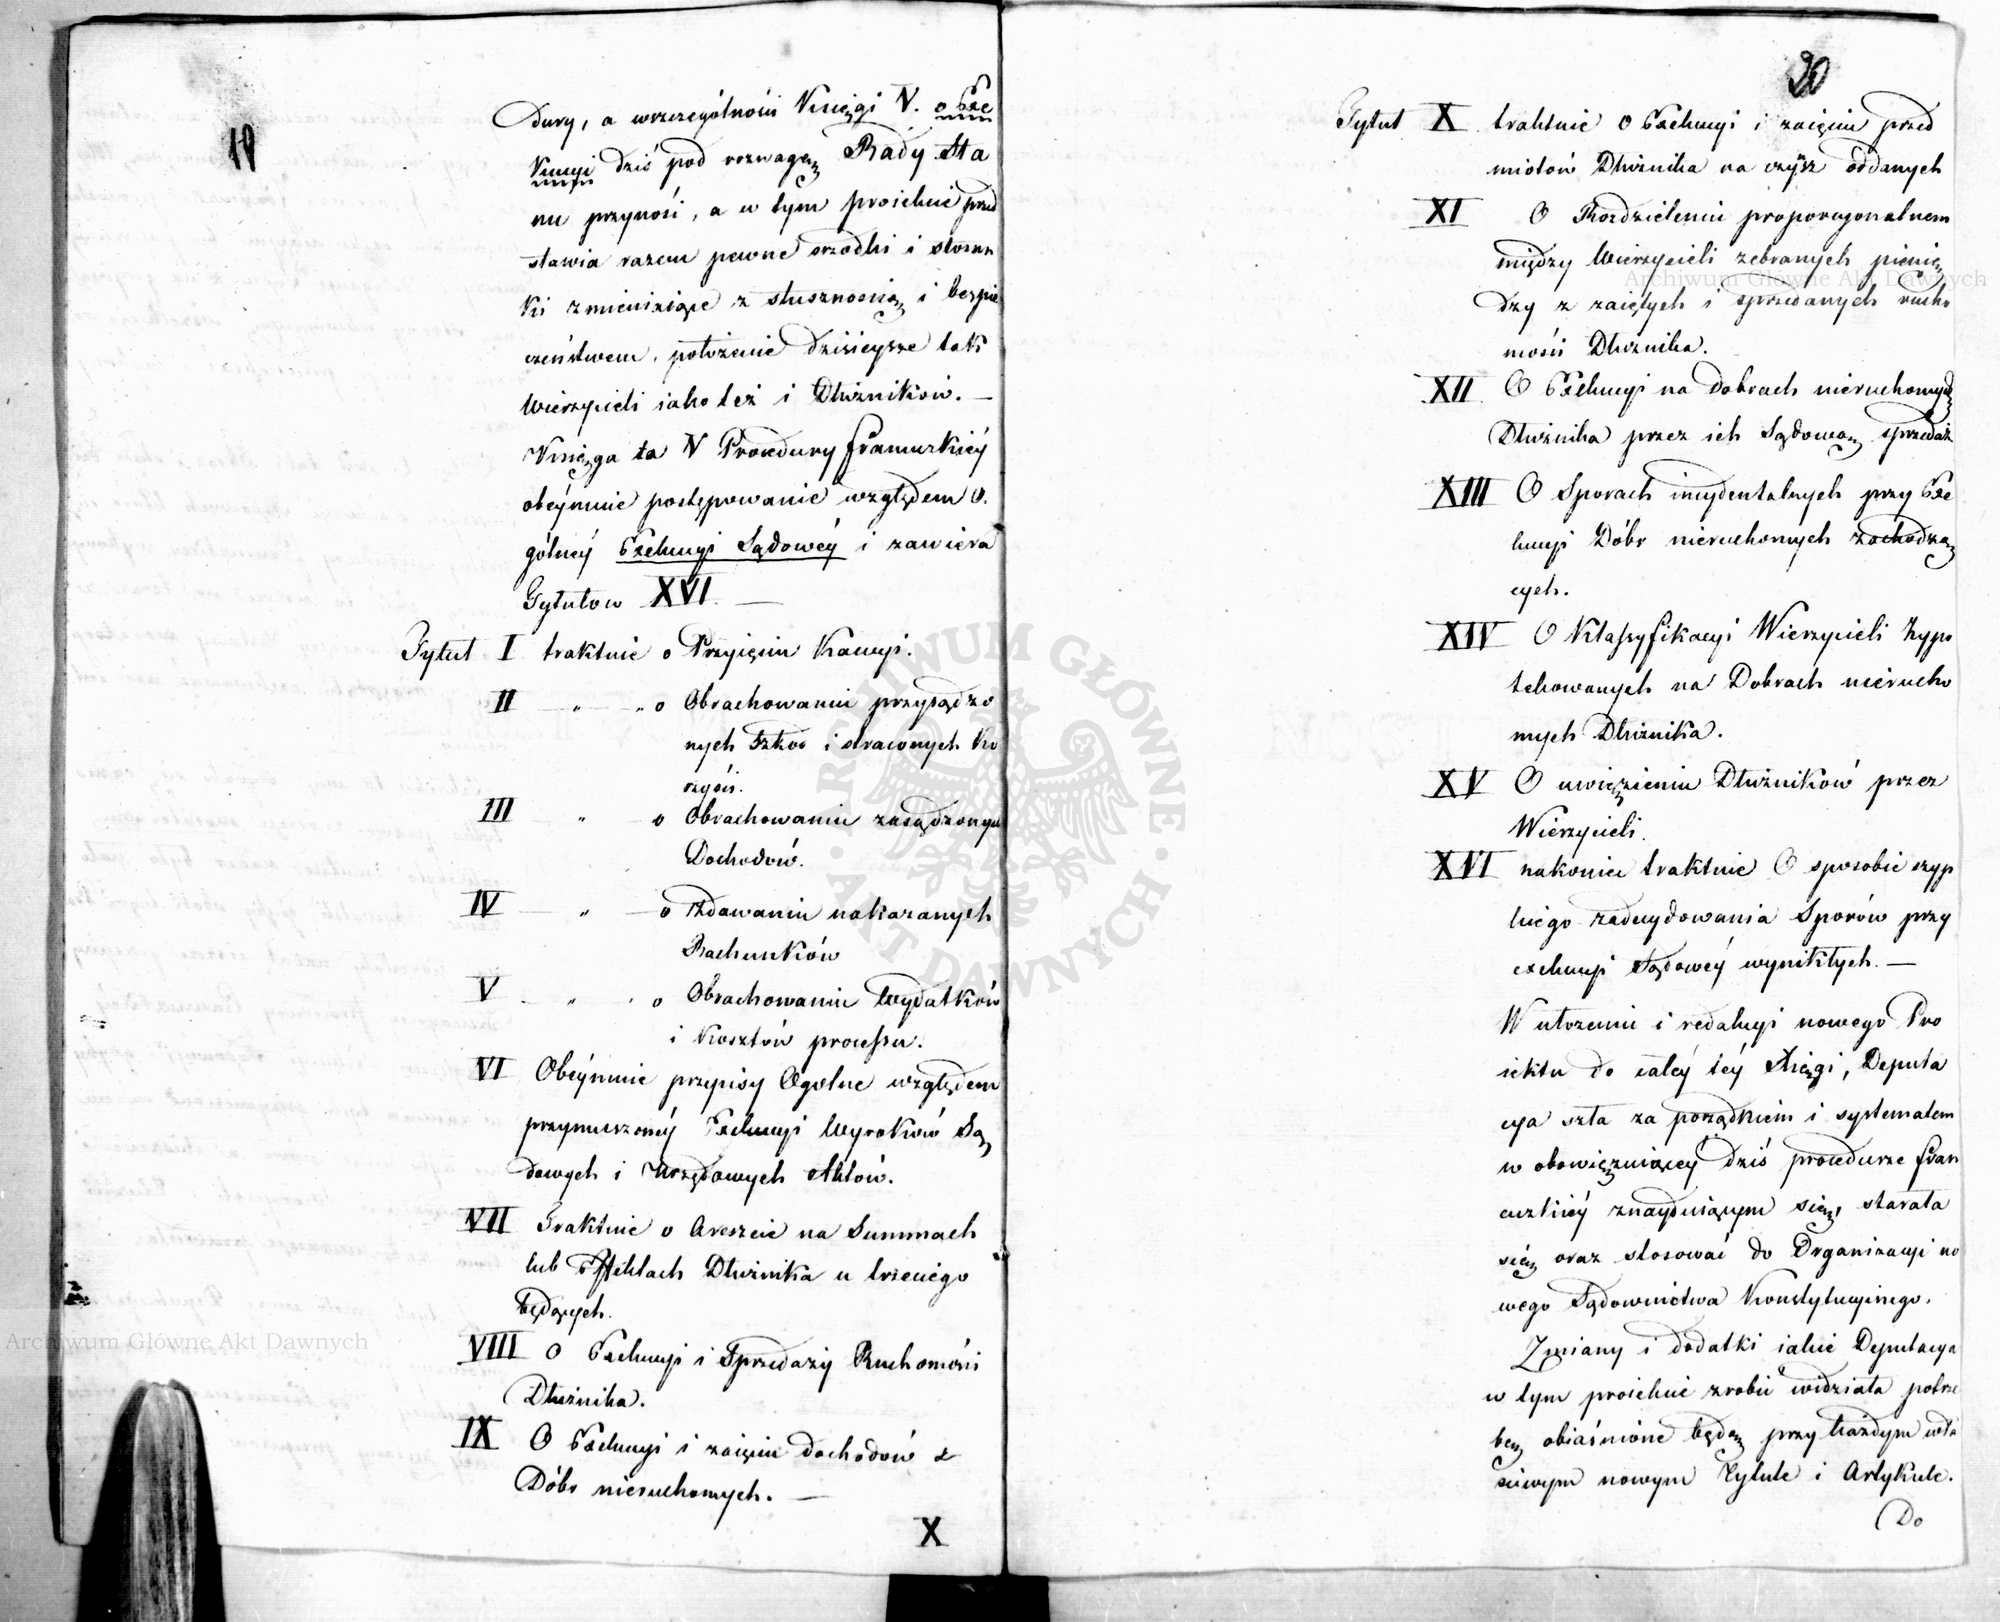 19
dury, a wszczególności Księgi V. o Exe
kucyi dziś pod rozwagę Rady Sta
nu przynosi, a w tym proiekcie przed
stawia razem pewne srzodki i stosun
ki zmieniaiące z słusznością i bezpie
czeństwem, położenie dzisieysze tak
Wierzycieli iako też i Dłużników. —
Xsięga ta V Procedury francuzkiéy
obeymuie postępowanie względem o.
gólnéy Exekucyi Sądowéy i zawiera
Tytułow XVI. —
Tytuł I traktuie o Przyięciu Kaucyi.
II — „ — „ o Obrachowaniu przysądzo
nych szkod i straconych ko
rzyści.
III — „ — o Obrachowaniu zasądzonych
Dochodów.
IV — „ — o Zdawaniu nakazanych
Rachunków
V „ o Obrachowaniu Wydatków
i Kosztów processu.
VI Obeymuie przepisy Ogolne względem
przymuszonéy Exekucyi Wyroków Są
dowych i Urzędowych Aktów.
VII Traktuie o Areszcie na Summach
lub Effektach Dłużnika u trzeciego
będących.
VIII O Exekucyi i Sprzedaży Ruchomości
Dłużnika.
IX O Exekucyi i zaięciu dochodów z
Dóbr nieruchomych. —
X
20
Tytuł X traktuie o Exekucyi i zaięciu przed
miotów Dłużnika na czynsz oddanych
XI O Rozdzieleniu proporcyonalnem
między Wierzycieli zebranych pienię
dzy z zaiętych i sprzedanych rucho
mości Dłużnika.
XII O Exekucyi na dobrach nieruchomych
Dłużnika przez ich Sądową sprzedaż
XIII O Sporach incydentalnych przy Exe
kucyi Dóbr nieruchomych zachodzą
cych.
XIV O Klassyfikacyi Wierzycieli hypo
tekowanych na Dobrach nierucho
mych Dłużnika.
XV O uwięzieniu Dłużników przez
Wierzycieli.
XVI nakoniec traktuie O sposobie szyp
kiego zadecydowania Sporów przy
exekucyi Sądowéy wynikłych. —
W ułożeniu i redakcyi nowego Pro
iektu do całéy téy Xięgi, Deputa
cya szła za porządkiem i systematem
w obowięzuiącéy dziś procedurze fran
cuzkiéy znayduiącym się, starała
się oraz stosować do Organizacyi no
wego Sądownictwa Konstytucyinego.
Zmiany i dodatki iakie Deputacya
w tym proiekcie zrobić widziała potrze
bę, obiaśnione będą przy każdym wła
ściwym nowym Tytule i Artykule.
Do
Archiwum Główne Akt Dawnych
Archiwum Główne Akt Dawnych
ARCHIWUM GŁÓWNE · AKT DAWNYCH ·